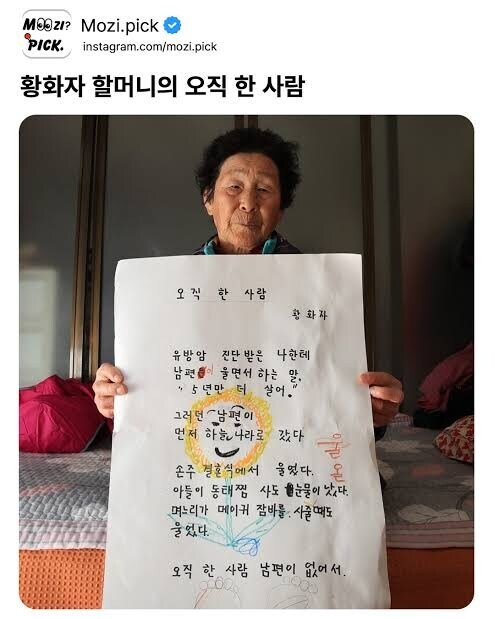 MOOZI?
PICK.
Mozi.pick
instagram.com/mozi.pick
황화자 할머니의 오직 한 사람
오직 한 사람
황화자
유방암 진단 받은 나한테
남편이 울면서 하는 말,
"5년만 더 살어."
그러던 남편이
먼저 하늘나라로 갔다
손주 결혼식에서 울었다.
아들이 동태찜 사도 눈물이 났다.
며느리가 메이커 잠바를 사줄 때도
울었다.
오직 한 사람 남편이 없어서.